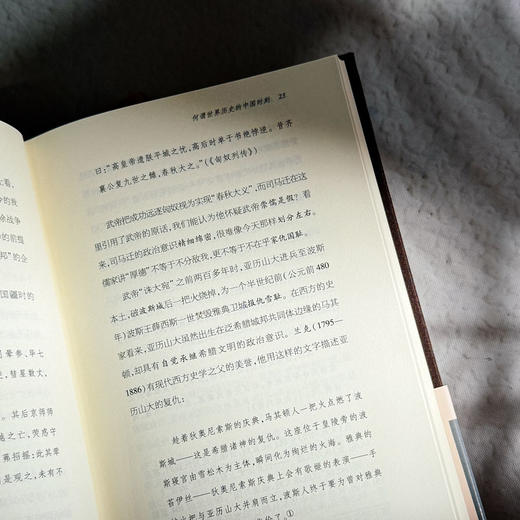 看、
中的我
余战争
中的前提
邦”的企
国疆时的
司晕参、毕七
彗星数丈，
其后京师师
越之亡，荧惑守
弗招摇；此其荦
是观之，未有不
何谓世界历史的中国时刻 25
曰：“高皇帝遗朕平城之忧，高后时单于书绝悖逆。昔齐
襄公复九世之雠，春秋大之。”（《匈奴列传》）
武帝把成功远逐匈奴视为实现“春秋大义”，而司马迁在这
里引用了武帝的原话，我们能认为他怀疑武帝崇儒是假？看
来，司马迁的政治意识精细绵密，很难像今天那样划分左右。
儒家讲“厚德”不等于不分敌我，更不等于不在乎家仇国耻。
武帝“诛大宛”之前两百多年时，亚历山大进兵至波斯
本土，破波斯城后一把火烧掉，为一个半世纪前（公元前480
年）波斯王薛西斯一世焚毁雅典卫城报仇雪耻。在西方的史
家看来，亚历山大虽然出生在泛希腊城邦共同体边缘的马其
顿，却具有自觉承继希腊文明的政治意识。兰克（1795—
1886）有现代西方史学之父的美誉，他用这样的文字描述亚
历山大的复仇：
趁着狄奥尼索斯的庆典，马其顿人一把大点燃了波
斯城——这是希腊诸神的复仇。这座位于皇陵旁的波
斯寝宫由雪松木为主体，瞬间化为绚烂的火海。雅典的
苔伊丝——狄奥尼索斯庆典上会有歌姬的表演——手
火把与亚历山大并肩而立，波斯人终于要为曾对雅典
了。①